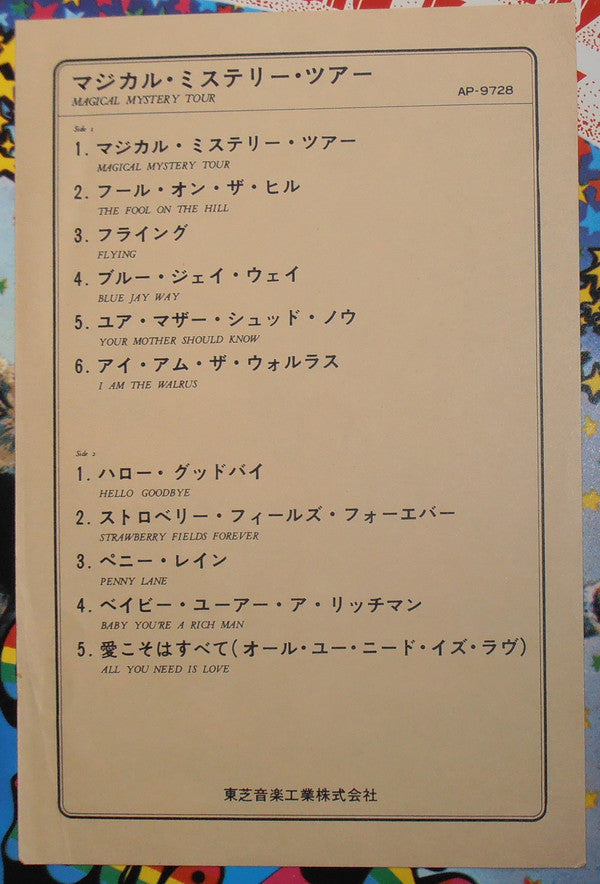 マジカル・ミステリー・ツアー
MAGICAL MYSTERY TOUR
AP-9728
Side 1
1. マジカル・ミステリー・ツアー
MAGICAL MYSTERY TOUR
2. フール・オン・ザ・ヒル
THE FOOL ON THE HILL
3. フライング
FLYING
4. ブルー・ジェイ・ウェイ
BLUE JAY WAY
5. ユア・マザー・シュッド・ノウ
YOUR MOTHER SHOULD KNOW
6. アイ・アム・ザ・ウォルラス
I AM THE WALRUS
Side 2
1. ハロー・グッドバイ
HELLO GOODBYE
2. ストロベリー・フィールズ・フォーエバー
STRAWBERRY FIELDS FOREVER
3. ペニー・レイン
PENNY LANE
4. ベイビー・ユーアー・ア・リッチマン
BABY YOU'RE A RICH MAN
5. 愛こそはすべて(オール・ユー・ニード・イズ・ラヴ)
ALL YOU NEED IS LOVE
東芝音楽工業株式会社